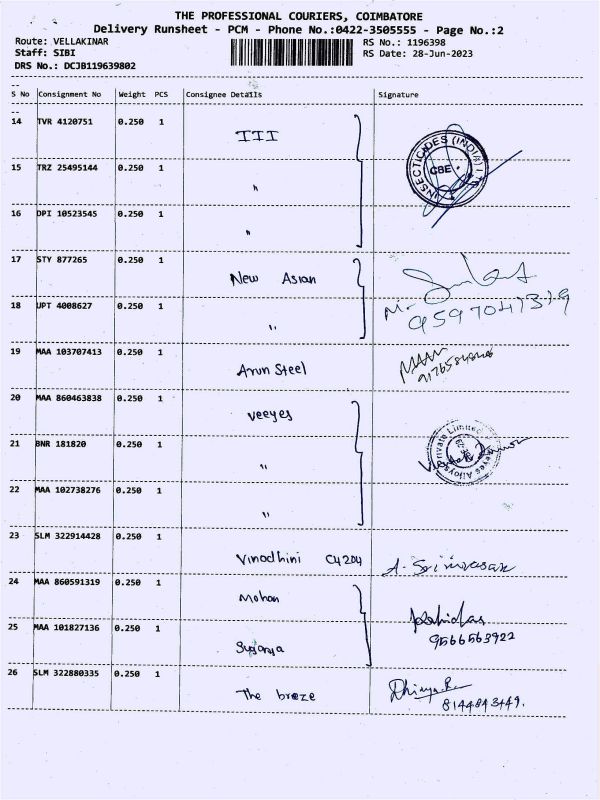 THE PROFESSIONAL COURIERS, COIMBATORE
Delivery Runsheet - PCM - Phone No.:0422-3505555 - Page No.:2
Route: VELLAKINAR RS No.: 1196398
Staff: SIBI RS Date: 28-Jun-2023
DRS No.: DCJB119639802
S No Consignment No Weight PCS Consignee Details Signature
14 TVR 4120751 0.250 1 III
INSECTICIDES (INDIA) LTD CBE
15 TRZ 25495144 0.250 1 "
16 DPI 10523545 0.250 1 "
17 STY 877265 0.250 1 New Asian
18 UPT 4008627 0.250 1 "
19 MAA 103707413 0.250 1 Arun Steel
20 MAA 860463838 0.250 1 veeyes
Private Limited
21 BNR 181820 0.250 1 "
22 MAA 102738276 0.250 1 "
23 SLM 322914428 0.250 1 Vinodhini C4204 A. Srinivasan
24 MAA 860591319 0.250 1 Mohan
25 MAA 101827136 0.250 1 Suganya 9566563922
26 SLM 322880335 0.250 1 The breze
8144843449.